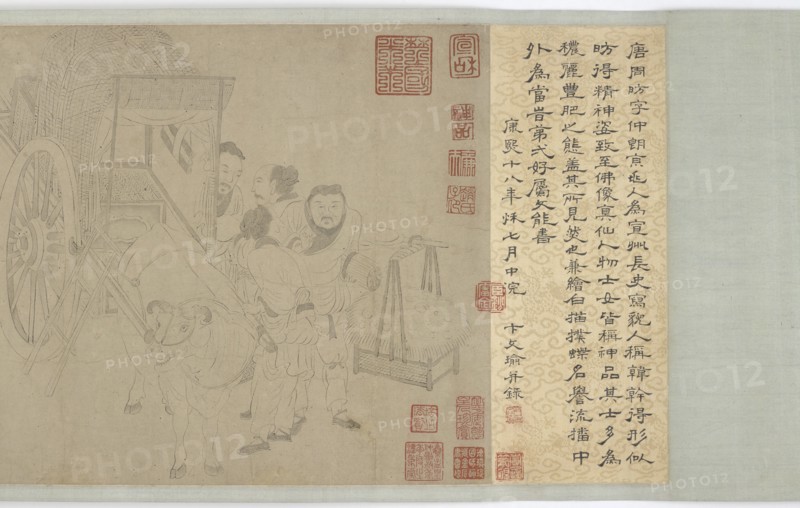 唐周昉字仲朗京兆人為宣州長史寫貌人稱韓幹得形似
昉得精神姿致至佛像真仙人物士女皆稱神品其士女為
穠麗豐肥之態蓋其所見然也兼繪白描撲蝶名譽流播中
外為當時第弌好屬文能書
康熙十八年秌七月中浣
卞文瑜并錄
PHOTO12